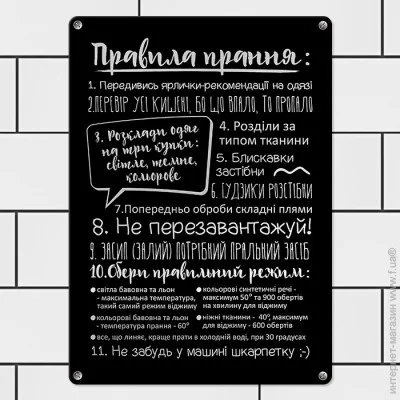 Правила прання:
1. Передивись ярлички-рекомендації на одязі
2.ПЕРЕВІР УСІ КИШЕНІ, БО ЩО ВПАЛО, ТО ПРОПАЛО
3. Розклади одяг
на три купки:
світле, темне,
кольорове
4. Розділи за
типом тканини
5. Блискавки
застібни
6. ҐУДЗИКИ РОЗСТІБНИ
7.Попередньо оброби складні плями
8. Не перезавантажуй!
9. ЗАСИП (ЗАЛИЙ) ПОТРІБНИЙ ПРАЛЬНИЙ ЗАСІБ
10.Обери правильний режим:
• світла бавовна та льон
- максимальна температура,
такий самий режим віджиму
• кольорові синтетичні речі -
максимум 50° та 900 обертів
на хвилину для віджиму
• кольорові бавовна та льон
- температура прання - 60°
• ніжні тканини - 40°, максимум
для віджиму - 600 обертів
• все, що линяє, краще прати в холодній воді, при 30 градусах
11. Не забудь у машині шкарпетку ;-)
интернет-магазин www.f.ua®